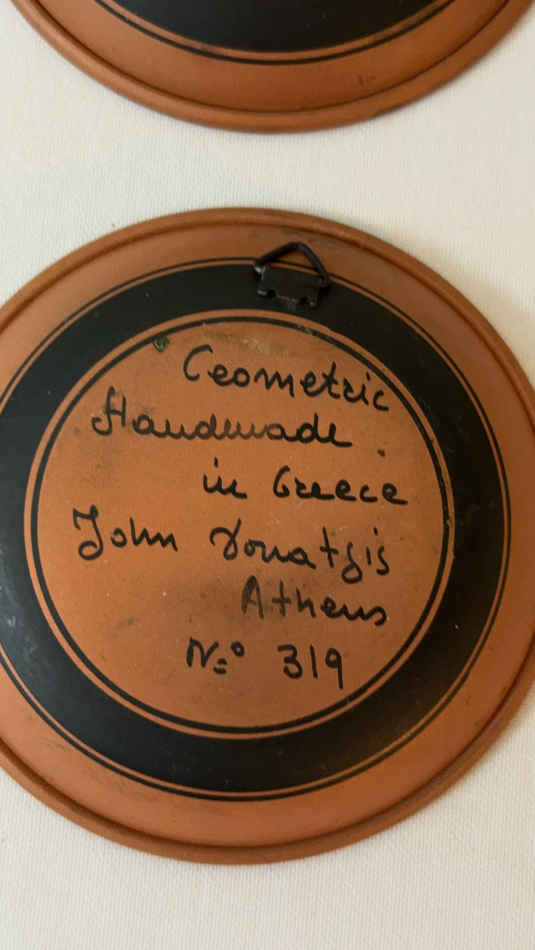 Geometric
Handmade
in Greece
John
Athens
No 319